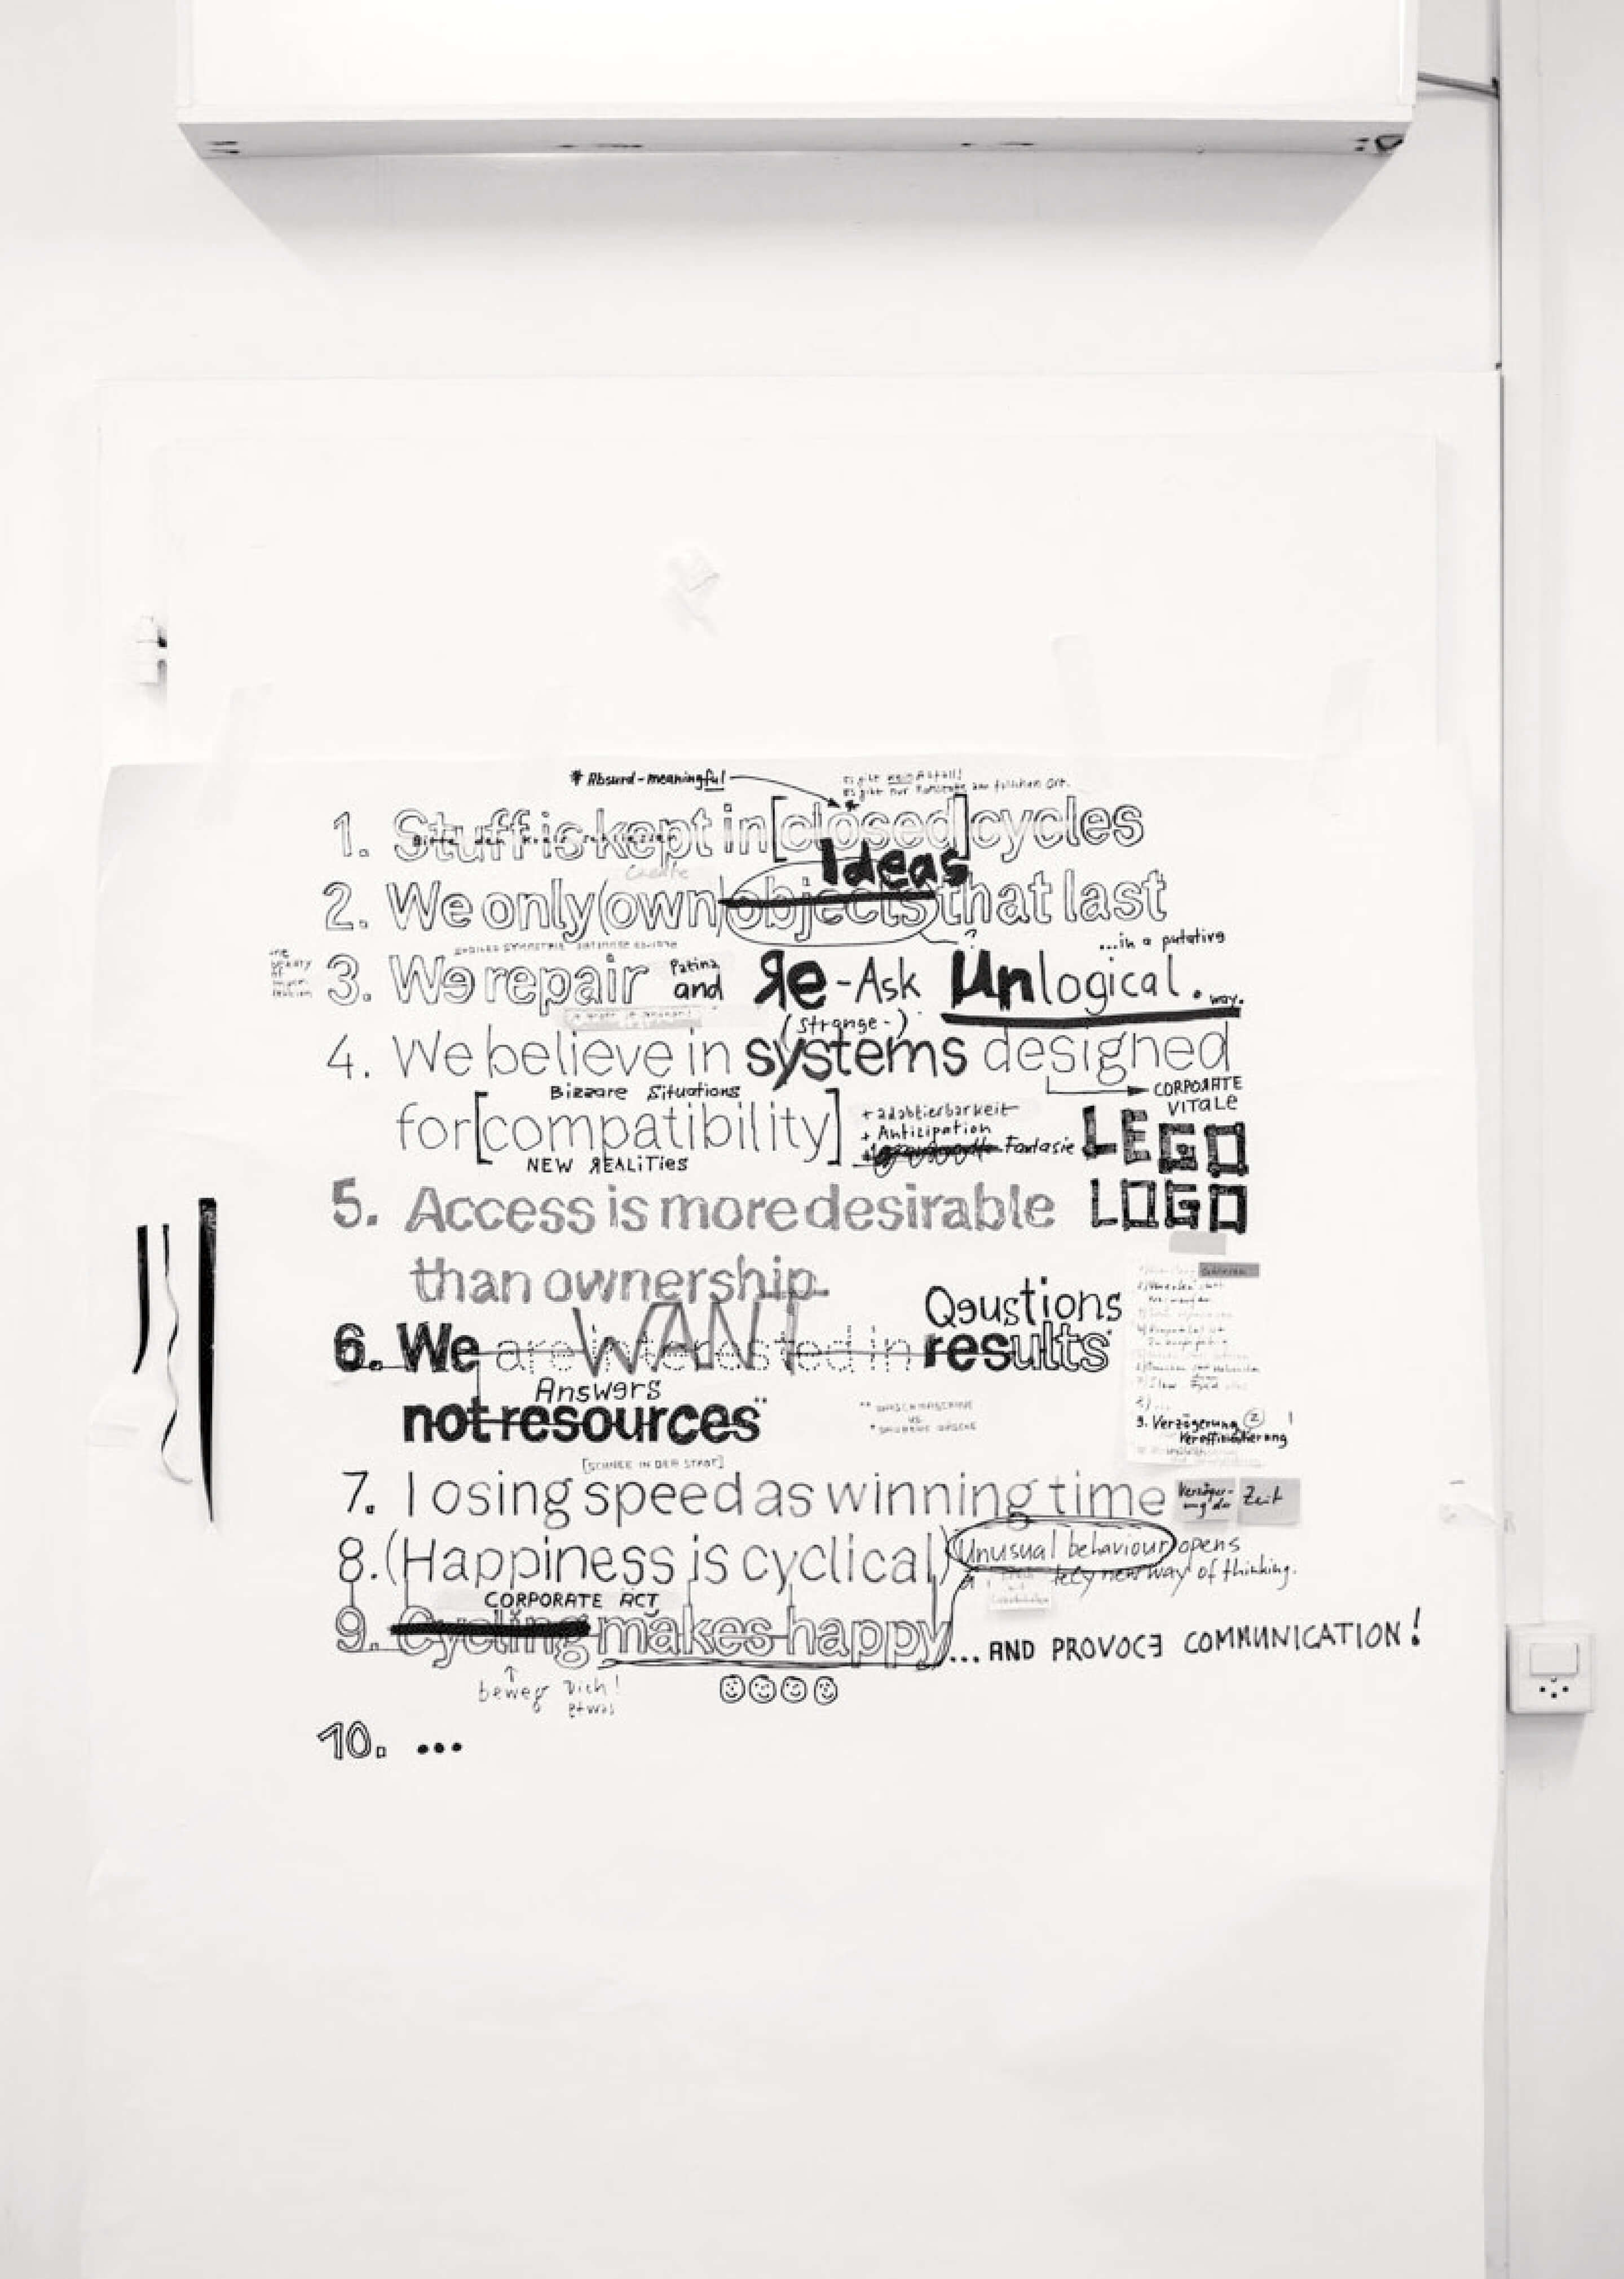 * Absurd-meaningful
Es gibt kein Abfall!
Es gibt nur am falschen Ort.
1. Stuff is kept in [closed] cycles
Bitte den Kreis schliessen
Create
Ideas
2. We only (own) objects that last
?
...in a putative
3. We repair Patina and Яe-Ask Unlogical. way.
(strange-)
4. We believe in systems designed
Bizzare Situations
CORPORATE
VITALE
for [compatibility]
+ adabtierbarkeit
+ Antizipation
+ Fantasie
NEW ЯEALiTies
LEGO
LOGO
5. Access is more desirable
than ownership.
WANT
Qeustions
6. We are interested in results
Answers
not resources
** WASCHMASCHINE
VS.
* SAUBERE WÄSCHE
9. Verzögerung 2
[SCHNEE IN DER STADT]
7. losing speed as winning time
Verzöger-
ung der
Zeit
8. (Happiness is cyclical)
Unusual behaviour opens
new way of thinking.
CORPORATE ACT
9. Cycling makes happy
... AND PROVOCE COMMUNICATION!
beweg Dich!
etwas
10. ...